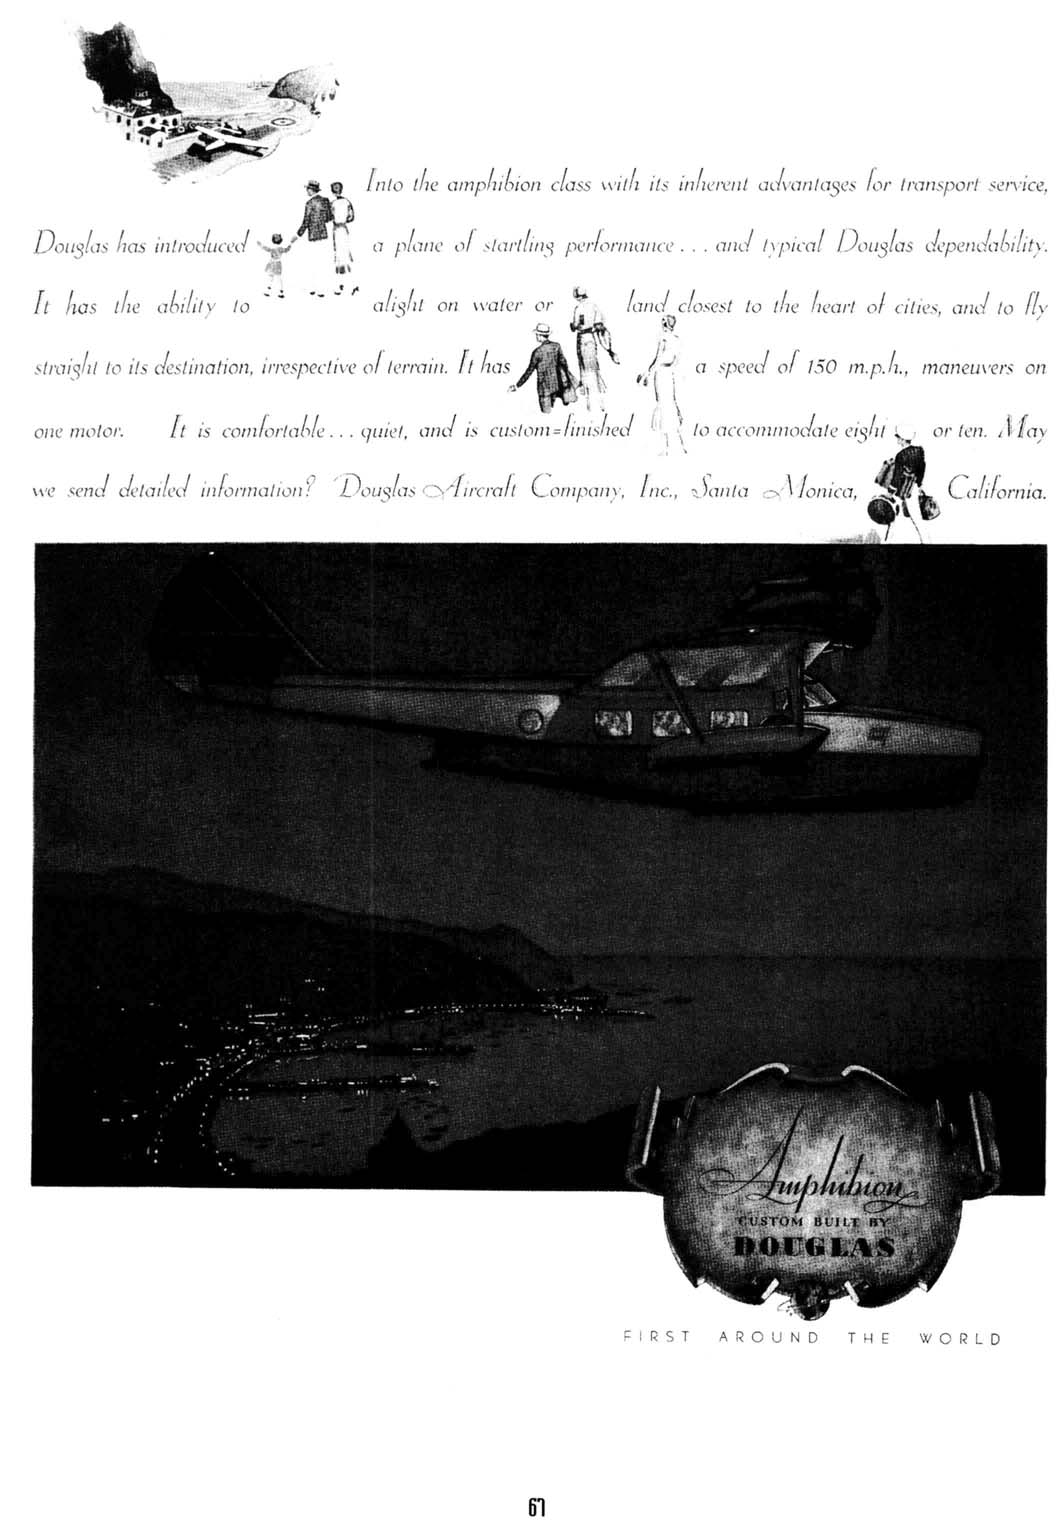 Into the amphibion class with its inherent advantages for transport service,
Douglas has introduced a plane of startling performance . . . and typical Douglas dependability.
It has the ability to alight on water or land closest to the heart of cities, and to fly
straight to its destination, irrespective of terrain. It has a speed of 150 m.p.h., maneuvers on
one motor. It is comfortable . . . quiet, and is custom=finished to accommodate eight or ten. May
we send detailed information? Douglas Aircraft Company, Inc., Santa Monica, California.
Amphibion
CUSTOM BUILT BY
DOUGLAS
FIRST AROUND THE WORLD
67